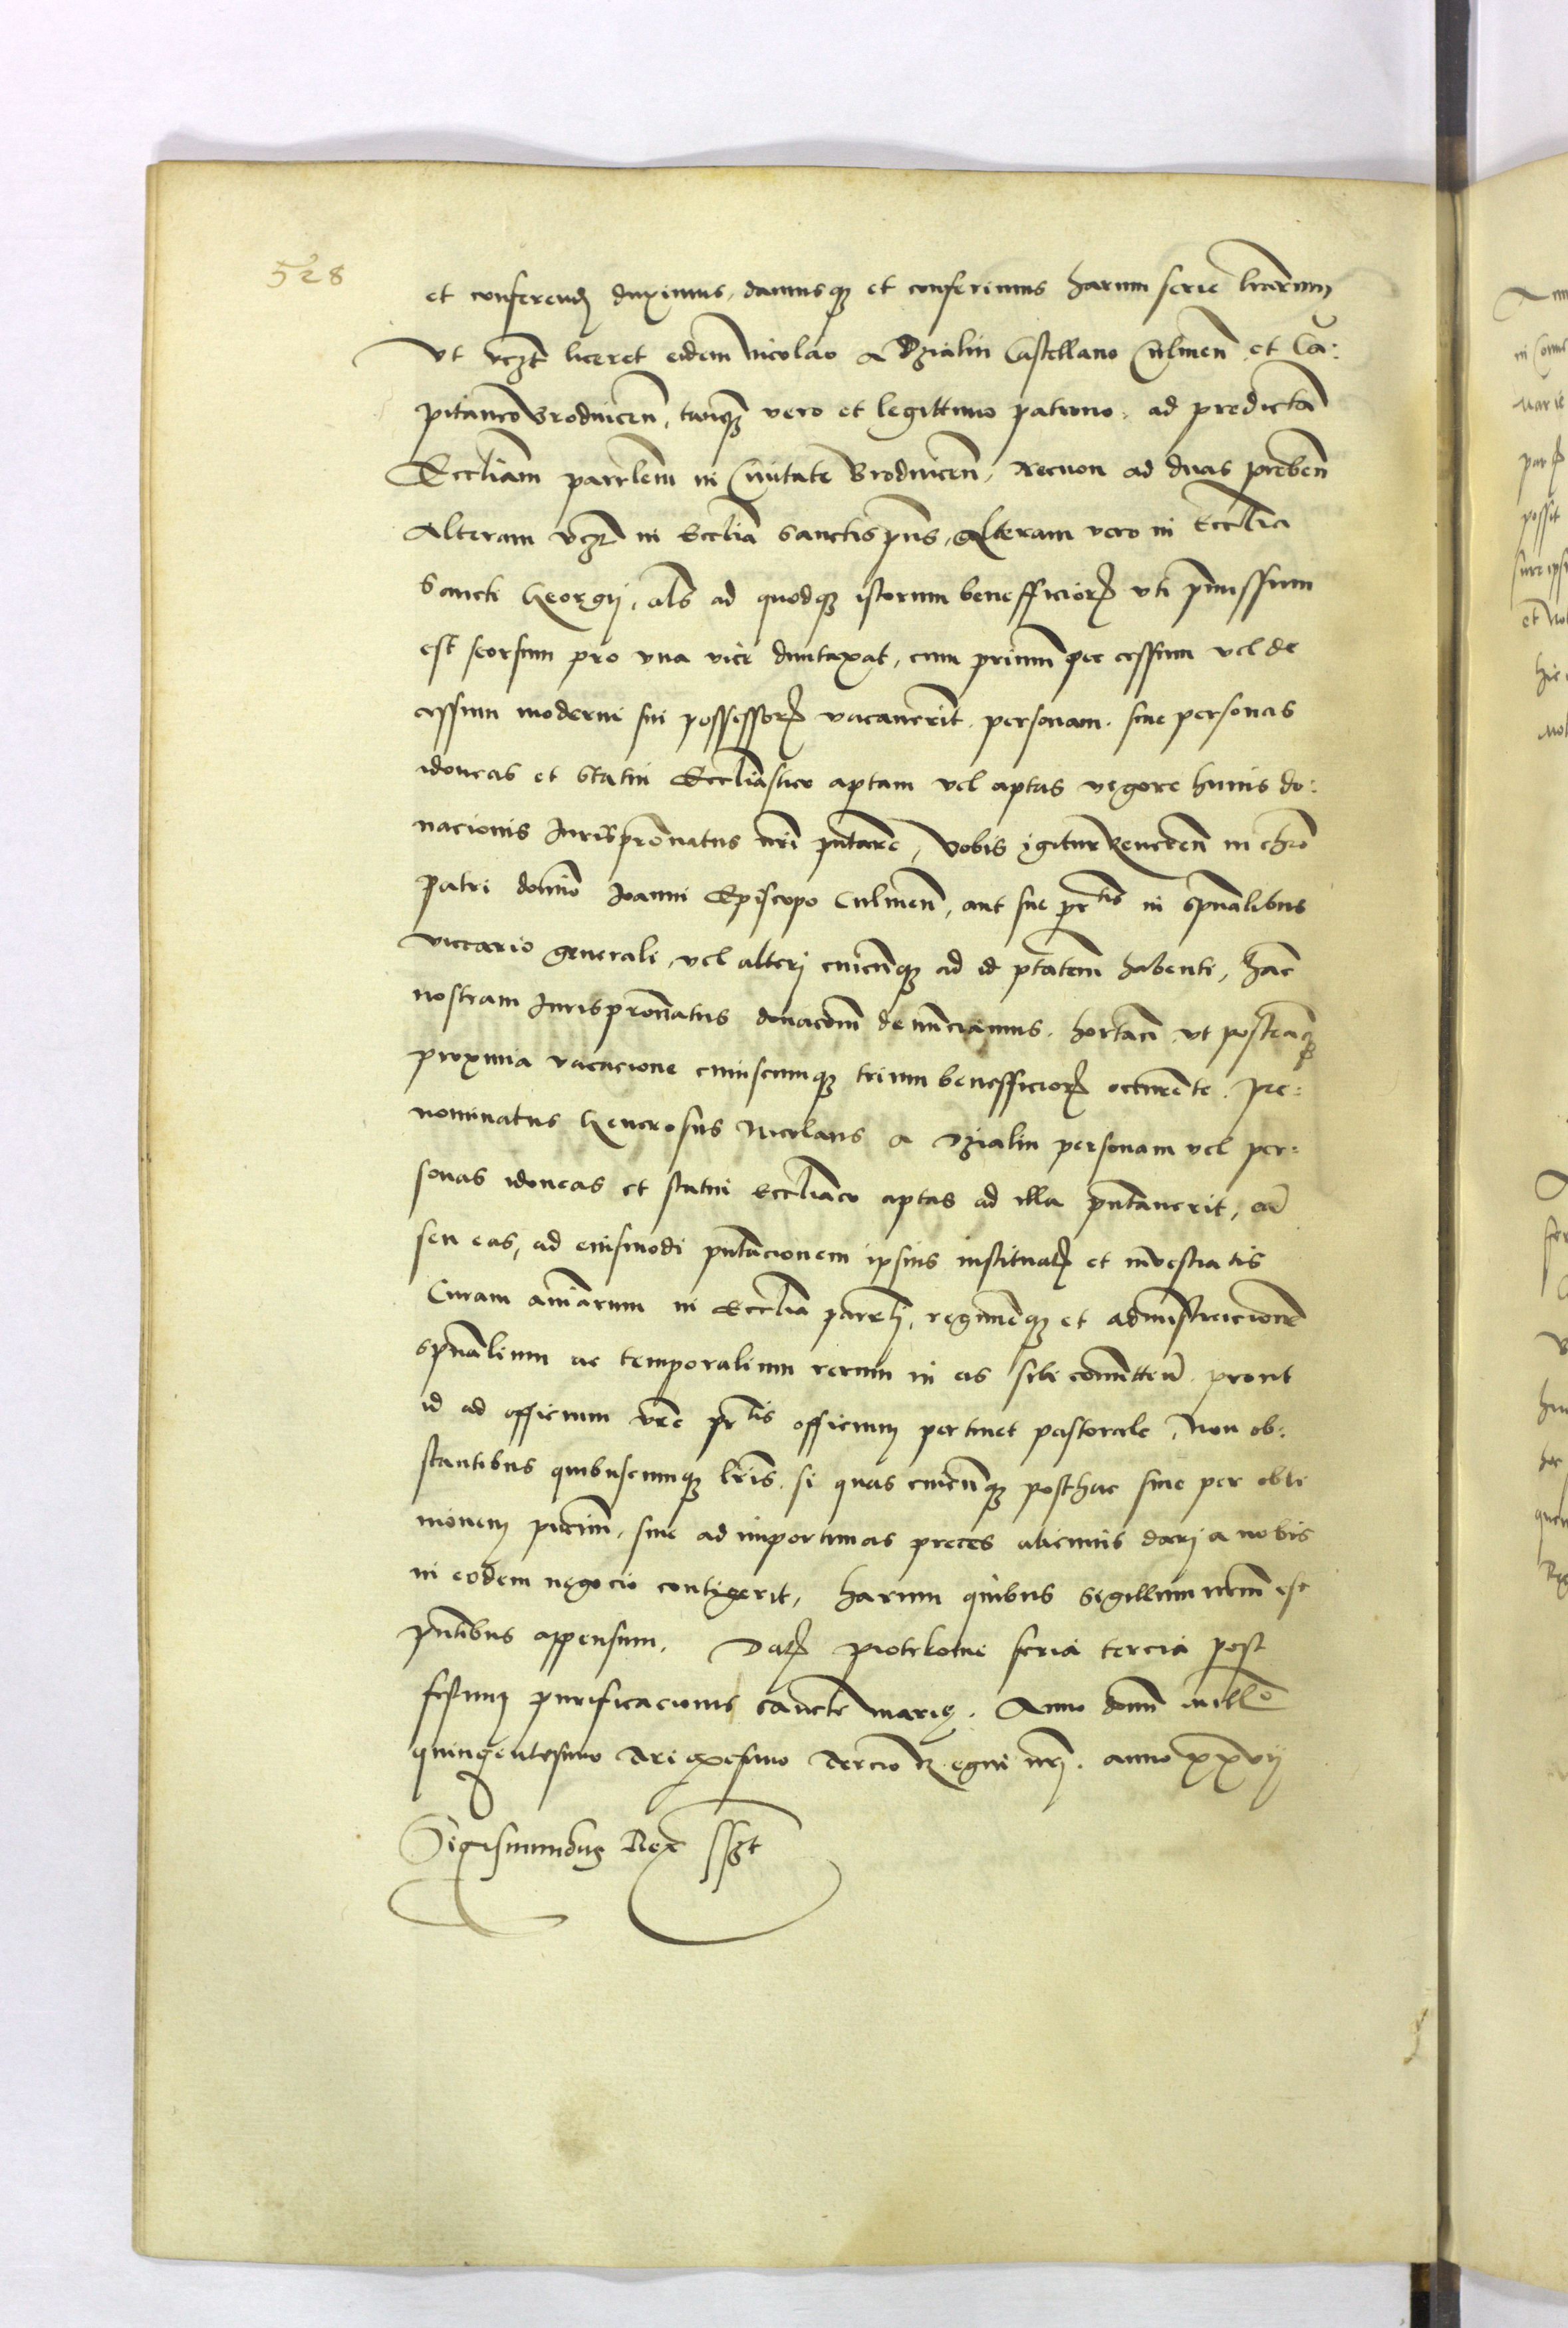 528
et conferend duximus, damusq et conferimus harum serie lrarum
Vt vczt liceret eidem Nicolao a Dzialin Castellano Culmen et Ca:
pitaneo Brodnicen, tanq vero et legittimo patrono ad predictā
Ecctiam parrlem in Ciuitate Brodnicen, Necnon ad duas preben
Alteram vczt in Ecclia Sanctispus, Alteram vero in Ecclia
Sancti Georgij, als ad quodq istorum benefficior vti pmissum
est seorsum pro vna vice duntaxat, cum primum per cessum vel de
cessum moderni sui possessor vacauerit personam siue personas
idoneas et Statui Eccliastico aptam vel aptas vigore huius do:
nacionis Jurispronatus nri pntare, Vobis igitur Reueren in chro
patri domino Joanni Episcopo Culmen, aut sue prtis in spualibus
viccario generali, vel alteri cuicunq ad id ptatem habenti, hāc
nostram Jurispronatus donacōm denunciamus hortan vt posteaq
proxima vacacione cuiuscumq trium benefficior occurente, pre:
nominatus Generosus Nicolaus a Dzialin personam vel per:
sonas idoneas et statui eccliaco aptas ad illa pntauerit, eā
seu eas, ad eiusmodi pntacionem ipsius instituat et inuestiatis
Curam aniarum in Ecclia parrli, regimenq et administracionē
spualium ac temporalium rerum in eis sibi committen prout
id ad officium vre prtis officium pertinet pastorale, Non ob:
stantibus quibuscumq lris si quas cuicunq posthac siue per obli
uionem siue ad importunas preces alicuius darj a nobis
in eodem negocio contigerit, harum quibus Sigillum nrm est
pntibus appensum. Dat Piotrkouie feria tercia post
festum purificacionis Sancte Marię. Anno domi millo
quingentesimo Trigesimo Tercio Regni nrj anno xxvij
Sigismundus Rex sszt